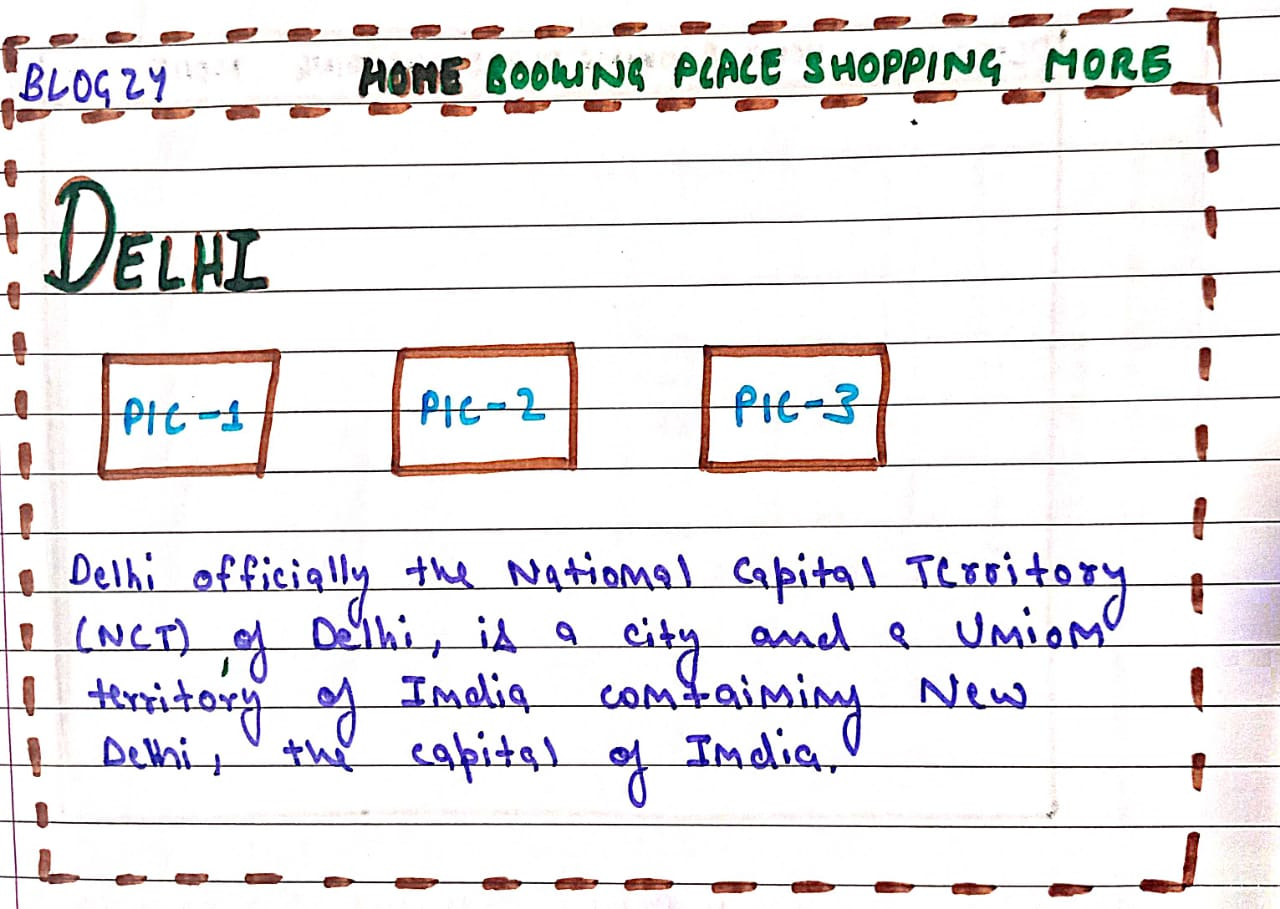 BLOGZY HOME BOOKING PLACE SHOPPING MORE
DELHI
PIC-1 PIC-2 PIC-3
Delhi officially the National Capital Territory
(NCT) of Delhi, is a city and a Union
territory of India containing New
Delhi, the capital of India.